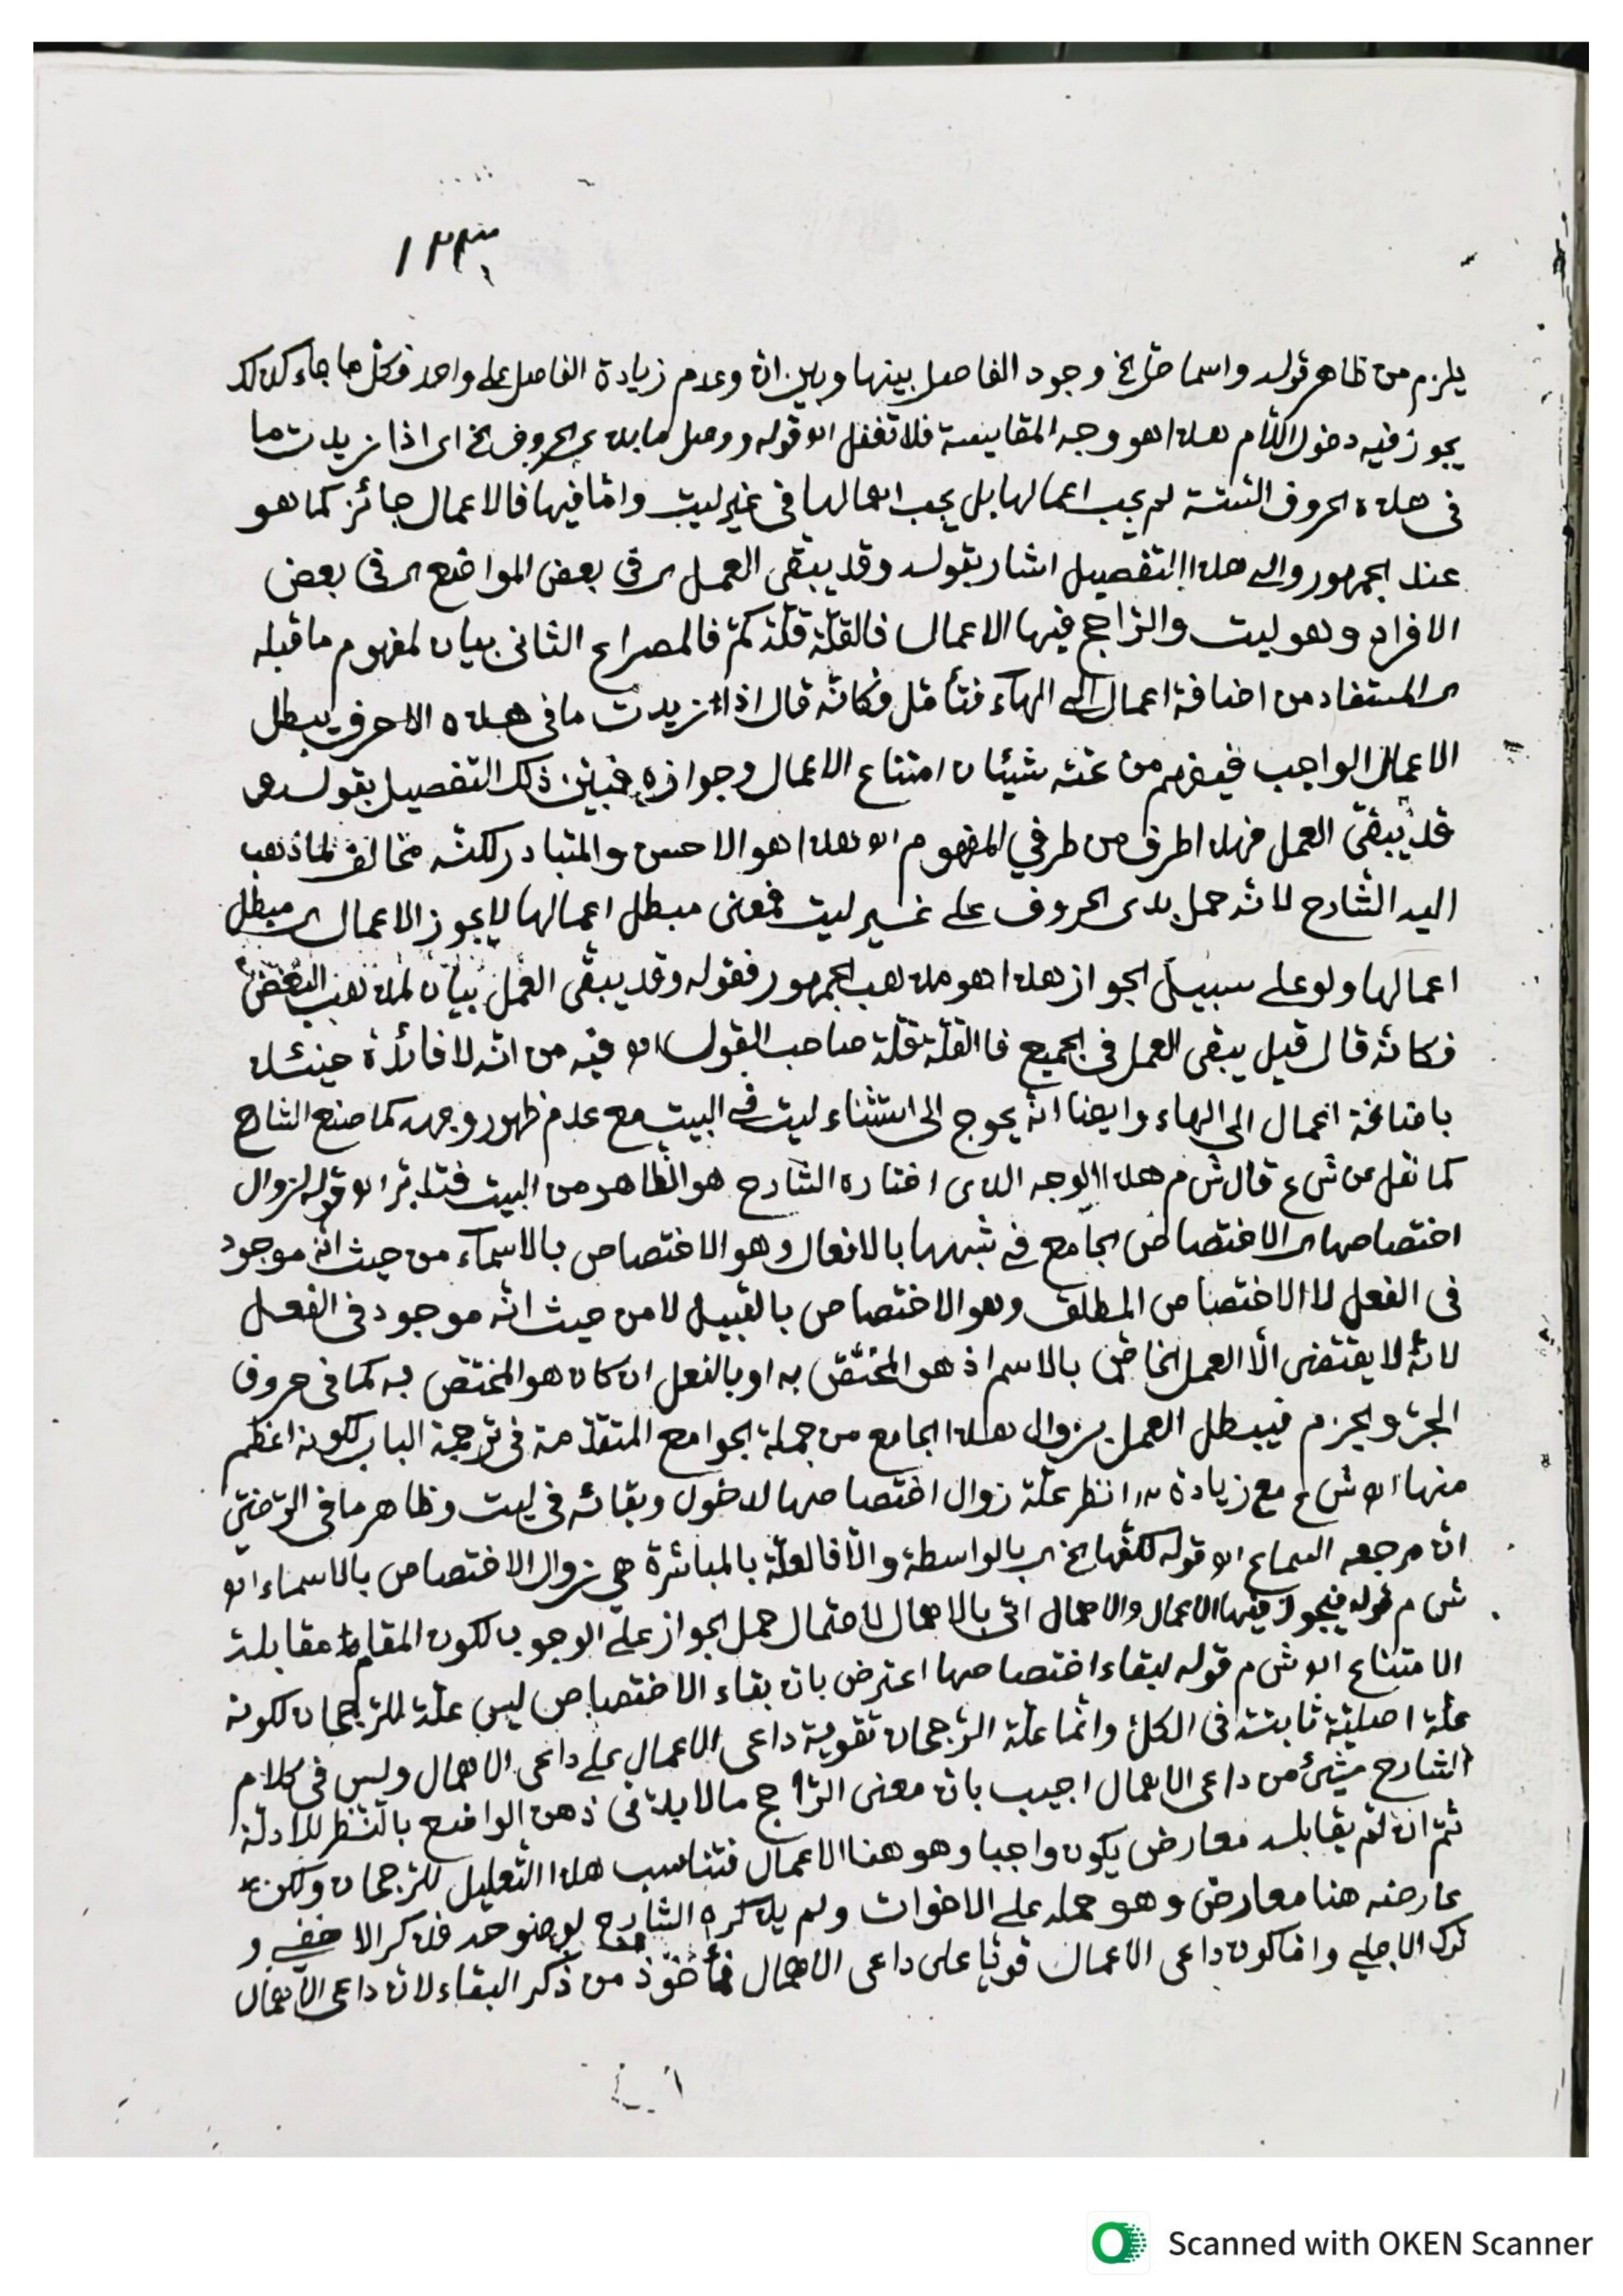 ١٢٣
يلزم من ظاهر قوله واسما حل الخ وجود الفاصل بينها وبين ان وعدم زيادة الفاصل على واحد فكل ما جاء كذلك
يجوز فيه دخول اللام هذا هو وجه المقايسة فلا تغفل اه قوله ووصل ما بذى الحروف الخ اى اذا زيدت ما
فى هذه الحروف الستة لم يجب اعمالها بل يجب اهمالها فى غير ليت وامّا فيها فالاعمال جائز كما هو
عند الجمهور والى هذا التفصيل اشار بقوله وقد يبقى العمل اى فى بعض المواضع اى فى بعض
الافراد وهو ليت والراجح فيها الاعمال فالقلّة قلّة كمّ فالمصراع الثانى بيان لمفهوم ما قبله
اى المستفاد من اضافة اعمال الى الهاء فتأمّل فكانّه قال اذا زيدت ما فى هذه الاحرف يبطل
الاعمال الواجب فيفهم من شيئان امتناع الاعمال وجوازه فبيّن ذلك التفصيل بقوله
قد يبقى العمل فهذا طرف من طرفي المفهوم اه هذا هو الاحسن والمتبادر لكنّه مخالف لما ذهب
اليه الشارح لانّه حمل بذى الحروف على غير ليت فمعنى مبطل اعمالها لا يجوز الاعمال اى مبطل
اعمالها ولو على سبيل الجواز هذا هو مذهب الجمهور فقوله وقد يبقى العمل بيان لمذهب البعض
فكانّه قال قيل يبقى العمل فى الجميع فاالقلّة قلّة صاحب القول اه وفيه من انّه لا فائدة حينئذ
باضافة اعمال الى الهاء وايضا انّه يحوج الى استثناء ليت فى البيت مع عدم ظهور وجهه كما صنع الشارح
كما نقل عن ش ع قال ش م هذا الوجه الذى اختاره الشارح هو الظاهر من البيت فتدبّر اه قوله لزوال
اختصاصها اى الاختصاص الجامع فى شبهها بالافعال وهو الاختصاص بالاسماء من حيث انّه موجود
فى الفعل لا الاختصاص المطلق وهو الاختصاص بالقبيل لا من حيث انّه موجود فى الفعل
لانّه لا يقتضى الّا العمل الخاصّ بالاسم اذ هو المختصّ به او بالفعل ان كان هو المختصّ به كما فى حروف
الجرّ والجزم فيبطل العمل بزوال هذا الجامع من جملة الجوامع المتقدّمة فى ترجمة الباب لكونه اعظم
منها اه ش ع مع زيادة انظر علّة زوال اختصاصها لدخول وبقائه فى ليت وظاهر ما فى الرّضيّ
انّ مرجعه السماع اه قوله لكفّها الخ اى بالواسطة والّا فالعلّة بالمباشرة هى زوال الاختصاص بالاسماء اه
ش م قوله فيجوز فيها الاعمال والاهمال اتى بالاهمال لاحتمال حمل الجواز على الوجوب لكون المقام مقابلة
الامتناع اه ش م قوله لبقاء اختصاصها اعترض بان بقاء الاختصاص ليس علّة للرّجحان لكونه
علّة اصليّة ثابتة فى الكلّ وانّما علّة الرّجحان تقوية داعى الاعمال على داعى الاهمال وليس فى كلام
الشارح شئ من داعى الاهمال اجيب بانّ معنى الرّاجح ما لابدّ فى ذهن الواضع بالنّظر للادلّة
ثمّ ان لم يقابله معارض يكون واجبا وهو هنا الاعمال فتناسب هذا التعليل للرّجحان ولكن
عارضه هنا معارض وهو حمله على الاخوات ولم يذكره الشارح لوضوحه فذكر الاخفى و
ترك الاجلى وامّا كون داعى الاعمال قويّا على داعى الاهمال فمأخوذ من ذكر البقاء لانّ داعى الاهمال
Scanned with OKEN Scanner